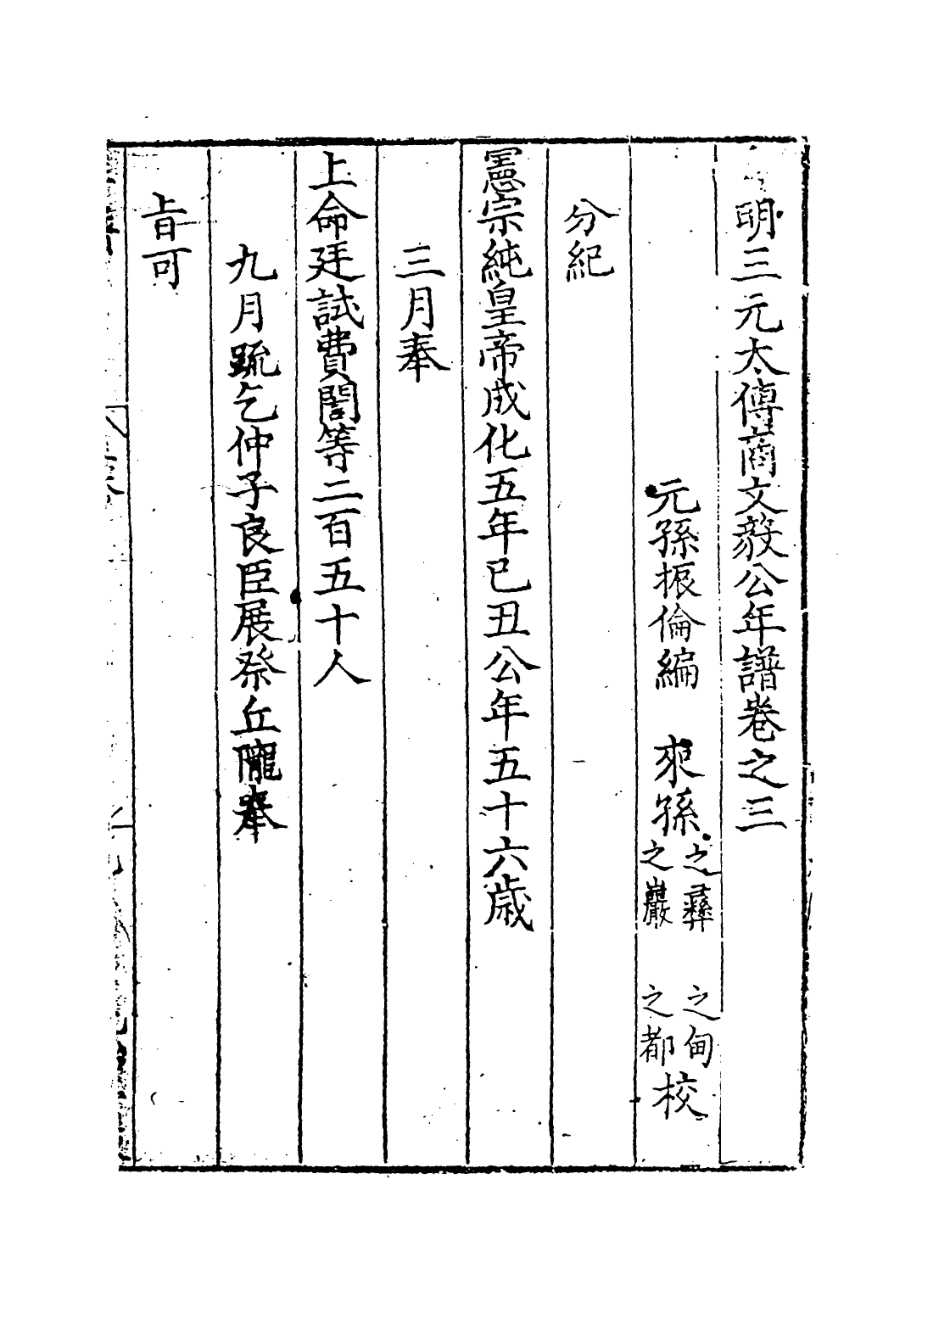 明三元太傅商文毅公年譜卷之三
元孫振倫編 來孫之彞 之甸 之巖 之都校
分紀
憲宗純皇帝成化五年己丑公年五十六歲
三月奉
上命廷試費誾等二百五十人
九月疏乞仲子良臣展祭丘隴奉
旨可